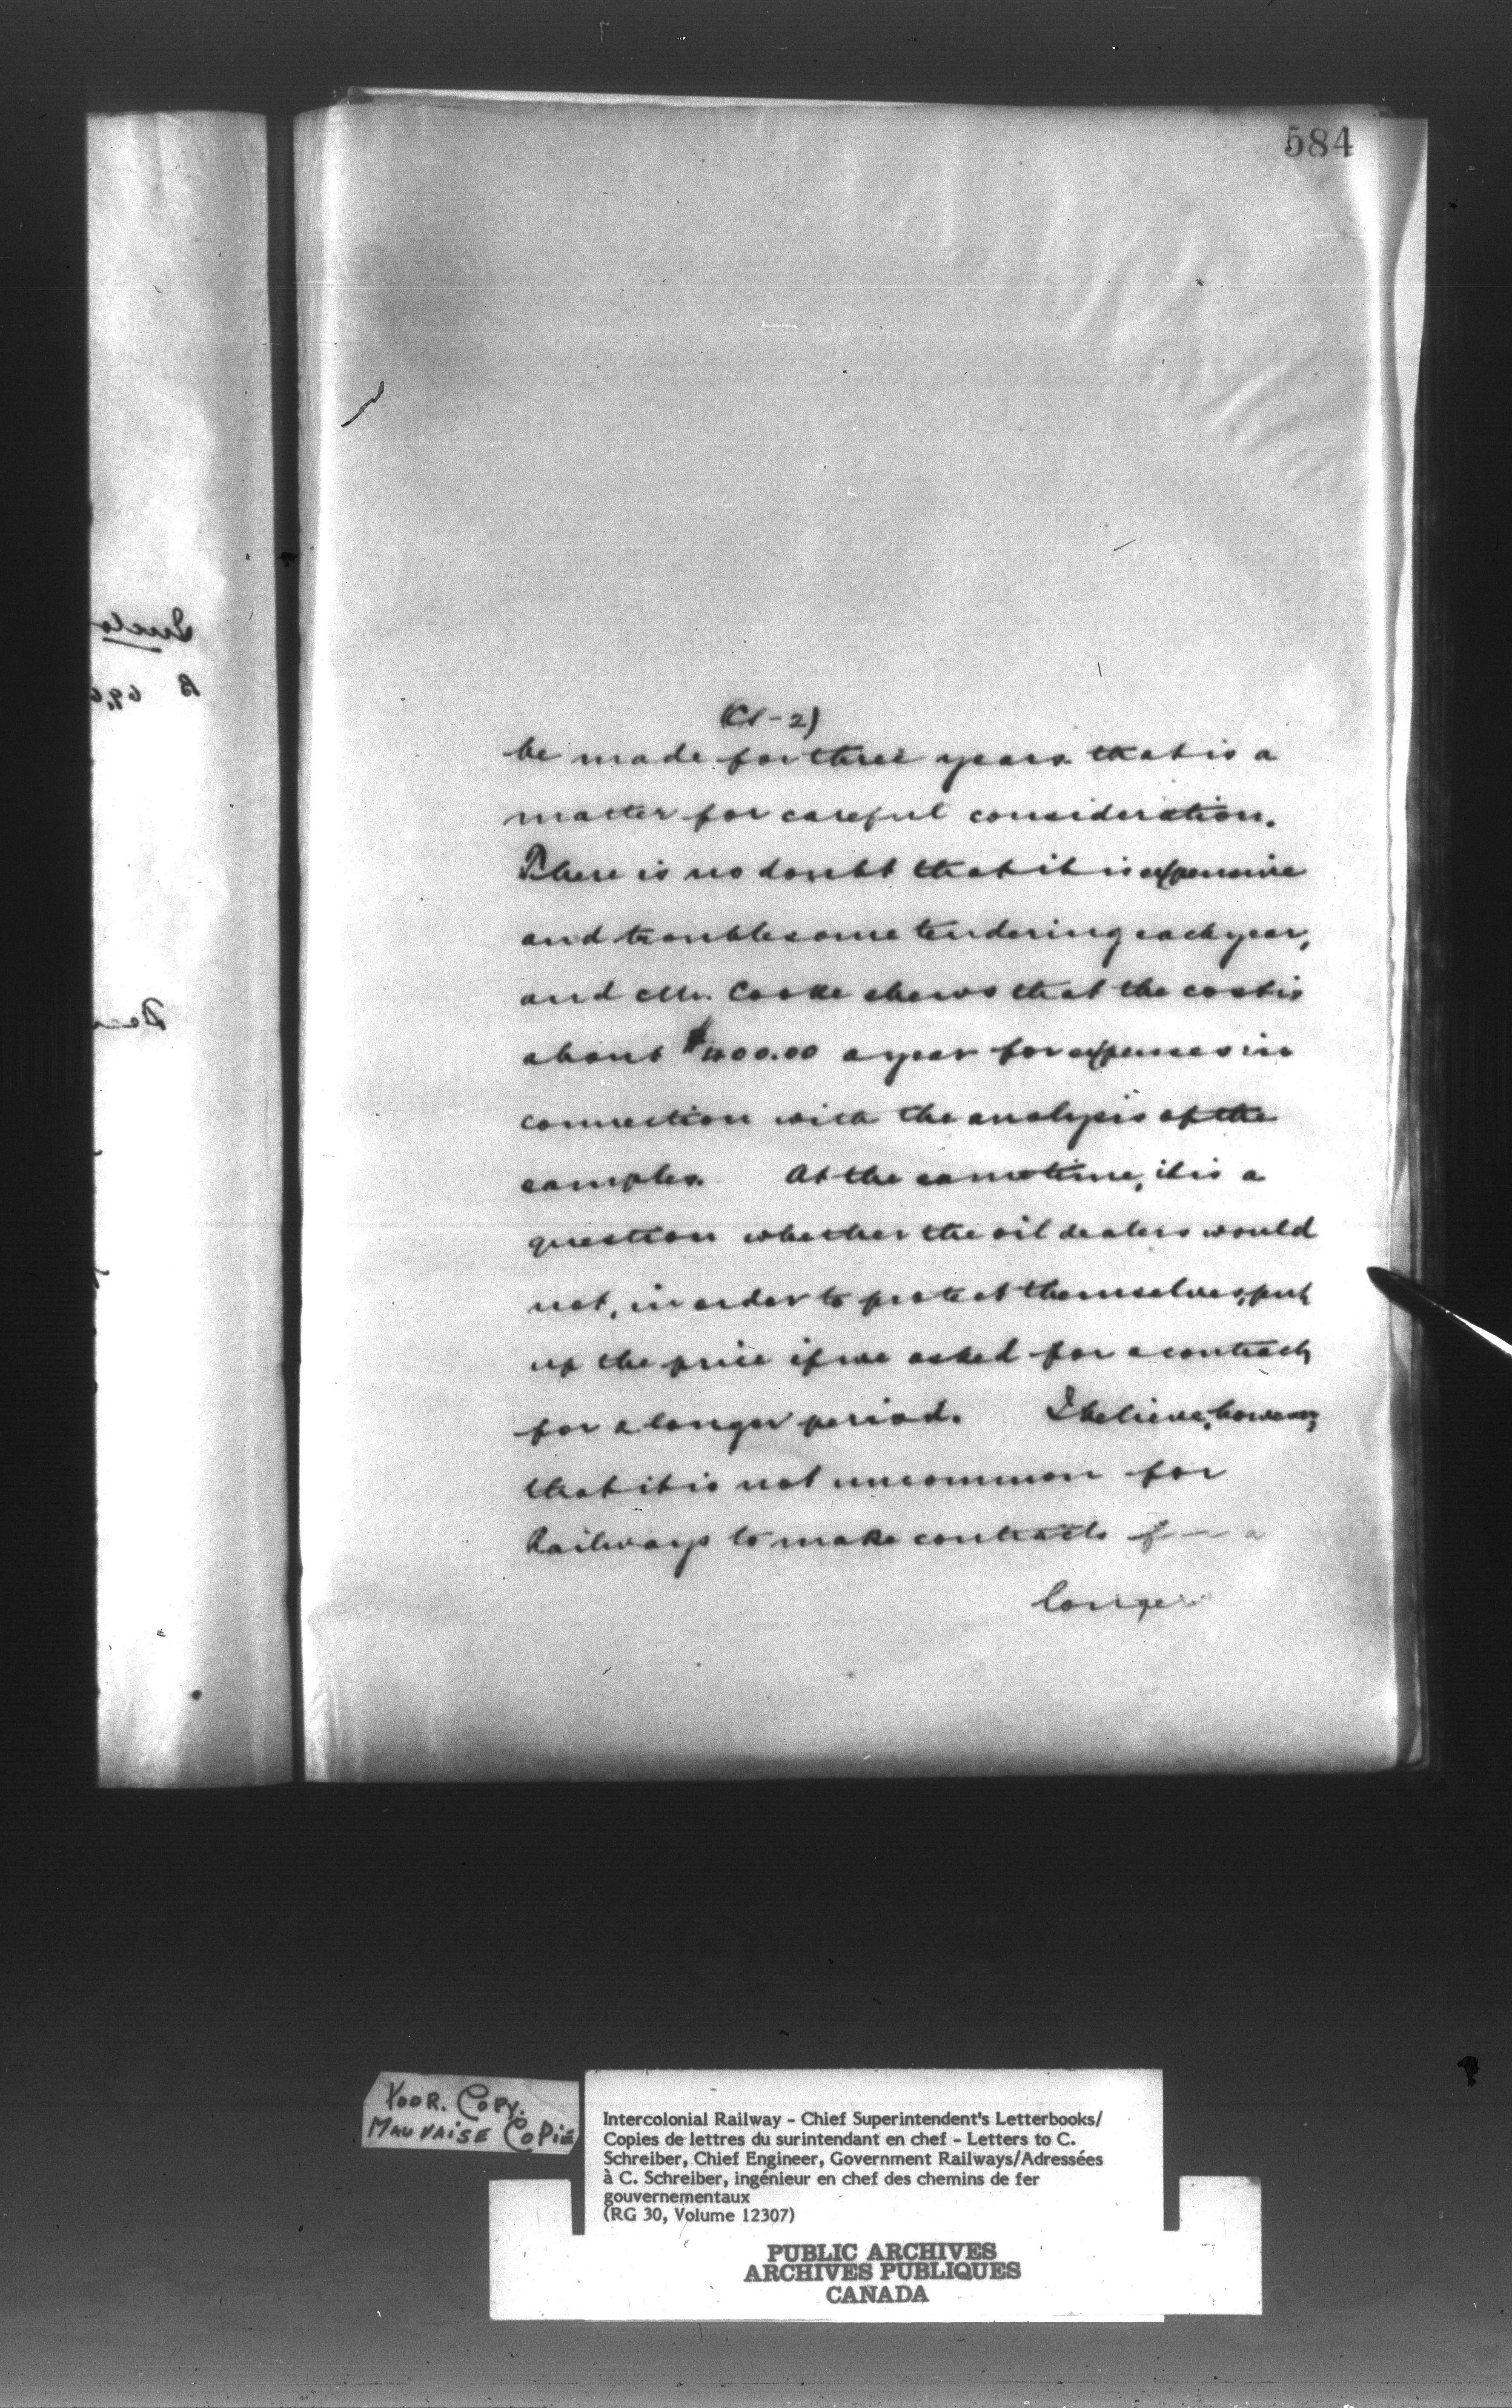 584
be made for three years that is a
matter for careful consideration.
There is no doubt that it is expensive
and troublesome tendering each year,
and Mr. Cooke shews that the cost is
about $400.00 a year for expenses in
connection with the analysis of the
samples. At the same time, it is a
question whether the oil dealers would
not, in order to protect themselves, put
up the price if we asked for a contract
for a longer period. I believe, however,
that it is not uncommon for
Railways to make contracts for a
longer
POOR. COPY.
MAUVAISE COPIE
Intercolonial Railway - Chief Superintendent's Letterbooks/
Copies de lettres du surintendant en chef - Letters to C.
Schreiber, Chief Engineer, Government Railways/Adressées
à C. Schreiber, ingénieur en chef des chemins de fer
gouvernementaux
(RG 30, Volume 12307)
PUBLIC ARCHIVES
ARCHIVES PUBLIQUES
CANADA